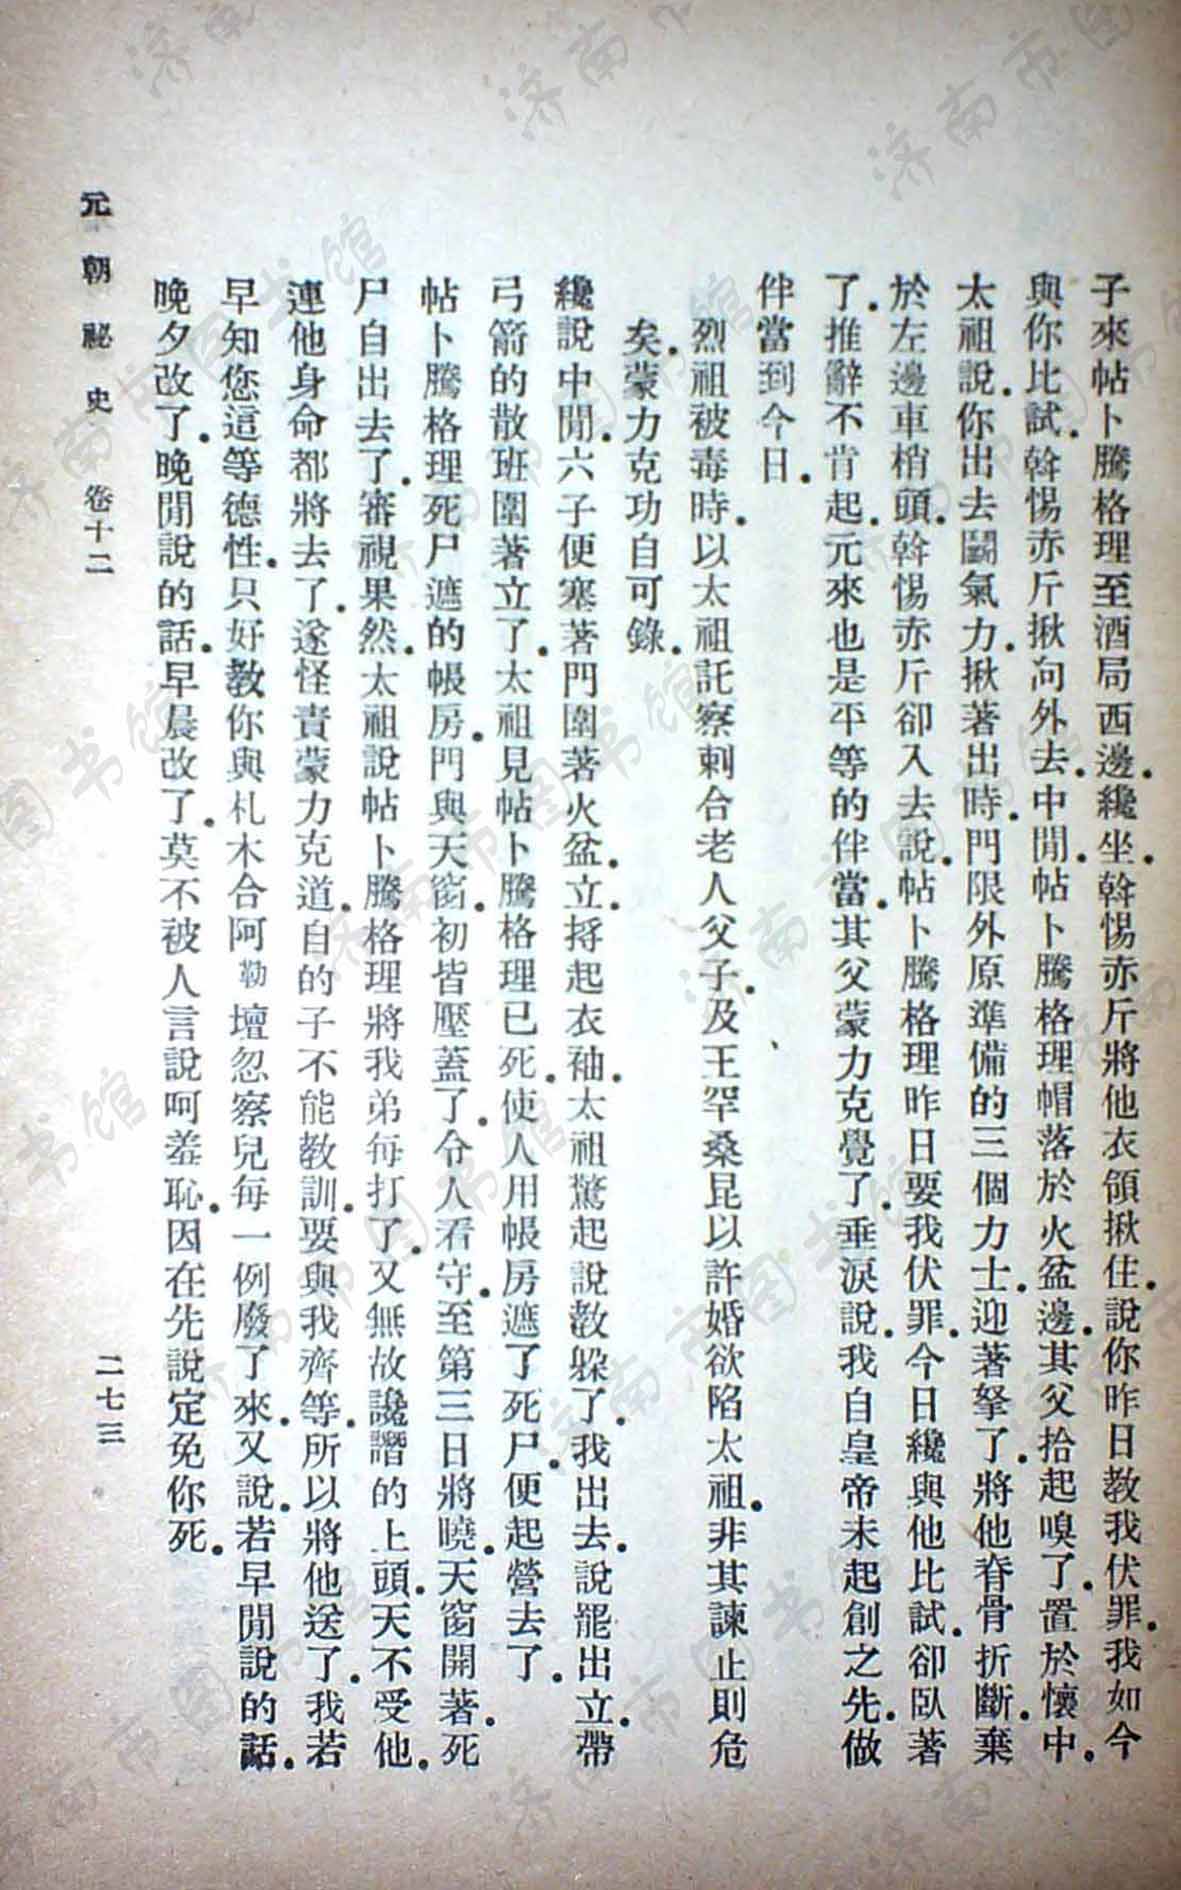 子來帖卜騰格理至酒局西邊。纔坐。斡惕赤斤將他衣領揪住。說你昨日教我伏罪。我如今
與你比試。斡惕赤斤揪向外去。中閒。帖卜騰格理帽落於火盆邊。其父拾起嗅了。置於懷中。
太祖說。你出去鬭氣力。揪著出時。門限外原準備的三個力士。迎著拏了。將他脊骨折斷。棄
於左邊車梢頭。斡惕赤斤卻入去說。帖卜騰格理昨日要我伏罪。今日纔與他比試。卻臥著
了。推辭不肯起。元來也是平等的伴當。其父蒙力克覺了。垂淚說。我自皇帝未起創之先。做
伴當到今日。
烈祖被毒時。以太祖託察剌合老人父子。及王罕桑昆以許婚欲陷太祖。非其諫止則危
矣。蒙力克功自可錄。
纔說中閒。六子便塞著門圍著火盆。立。揎起衣袖。太祖驚起說教躱了。我出去。說罷出立。帶
弓箭的散班圍著立了。太祖見帖卜騰格理已死。使人用帳房遮了死尸。便起營去了。
帖卜騰格理死尸遮的帳房。門與天窗。初皆壓蓋了。令人看守。至第三日將曉。天窗開著。死
尸自出去了。審視果然。太祖說帖卜騰格理將我弟每打了。又無故讒譖的上頭。天不受他。
連他身命都將去了。遂怪責蒙力克道。自的子不能教訓。要與我齊等。所以將他送了。我若
早知您這等德性。只好教你與札木合阿勒壇忽察兒每一例廢了來。又說。若早閒說的話。
晚夕改了。晚閒說的話。早晨改了。莫不被人言說呵羞恥。因在先說定免你死。
元朝祕史 卷十二
二七三
济南市图书馆